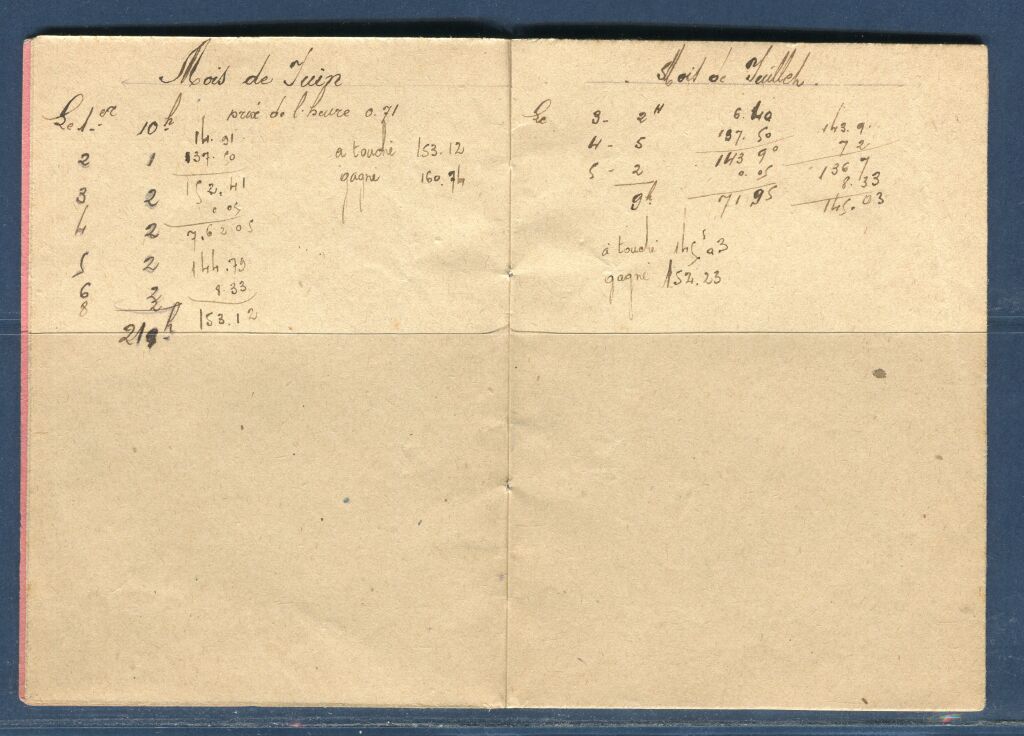 Mois de Juin
Le 1er 10h prix de l'heure 0.71
14.91
2 1 137.50 a touché 153.12
152.41 gagné 160.74
3 2
0.05
4 2 7.62 05
5 2 144.79
6 2 8.33
8 2
21h 153.12
Mois de Juillet
Le 3 - 2H 6.40
4 - 5 137.50 143.9
143 90 7 2
5 - 2 0.05 136 7
8.33
9h 71 95 145.03
a touché 145
gagné 152.23